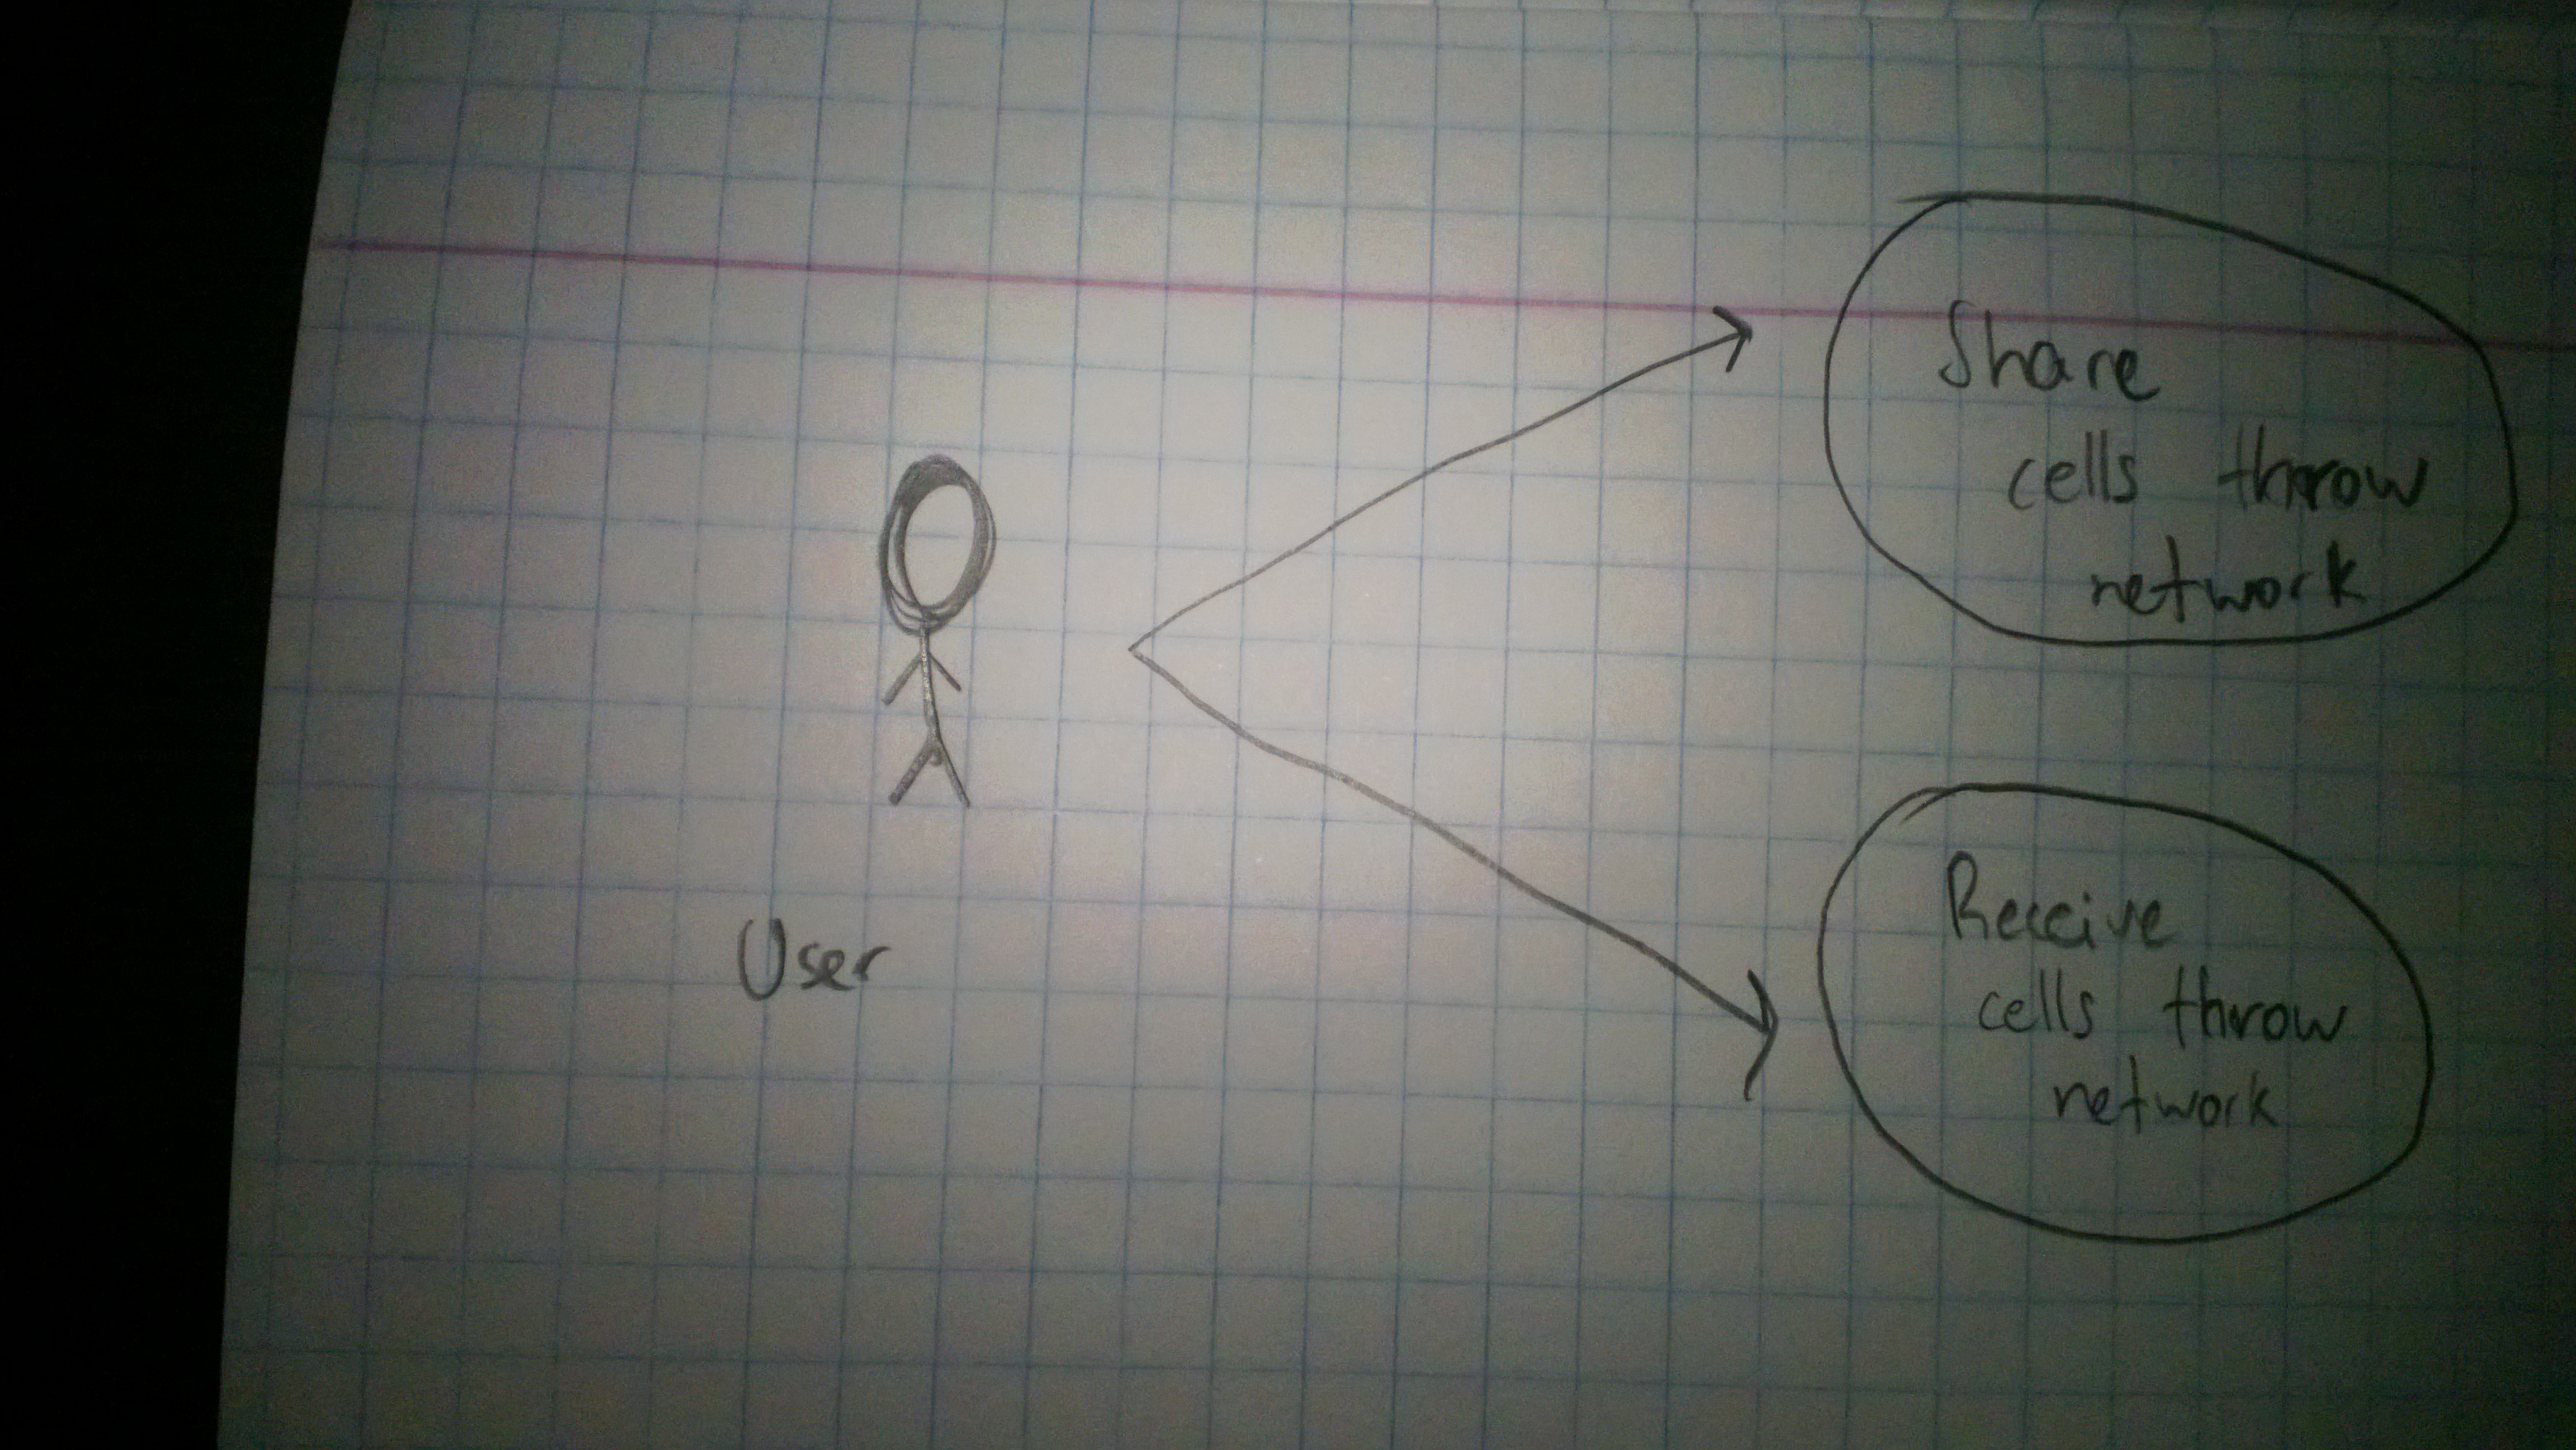 Share
cells throw
network
User
Receive
cells throw
network